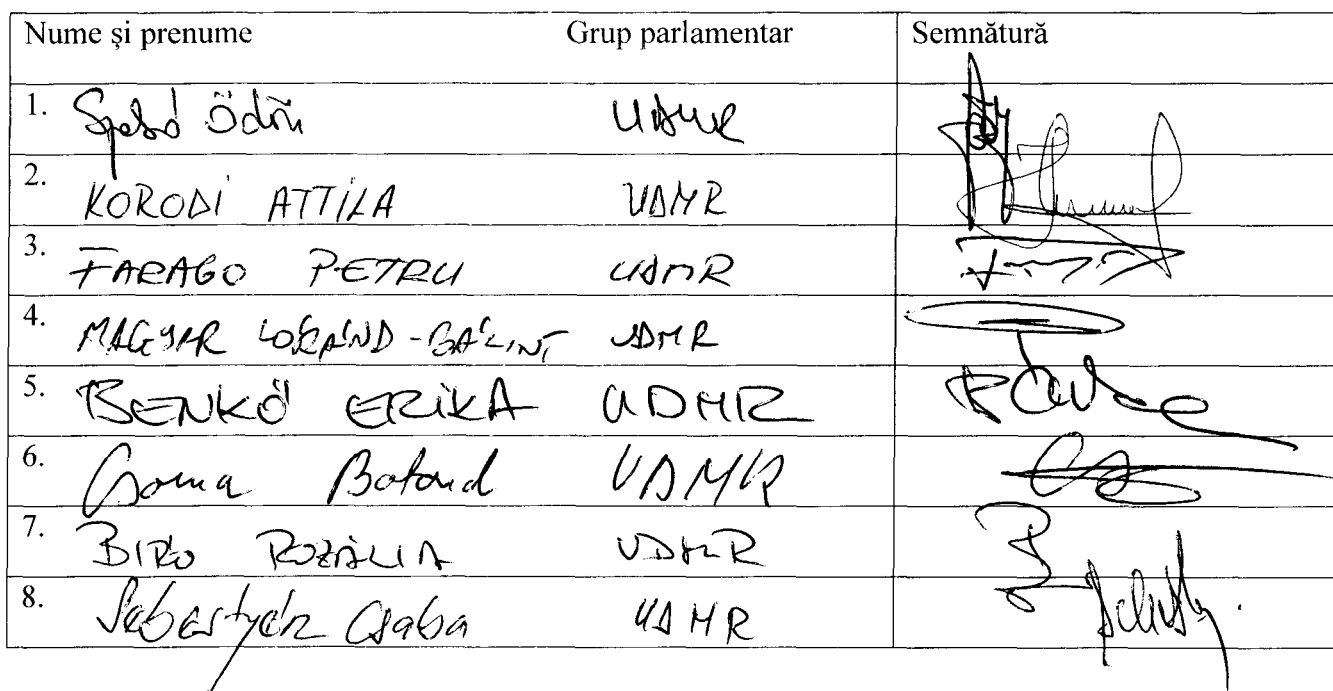 Nume și prenume Grup parlamentar Semnătură
1. Szabó Ödön UDMR
2. KORODI ATTILA UDMR
3. FARAGO PETRU UDMR
4. MAGYAR LORÁND-BÁLINT UDMR
5. BENKŐ ERIKA UDMR
6. Csoma Botond UDMR
7. BIRO ROZÁLIA UDMR
8. Sebestyén Csaba UDMR